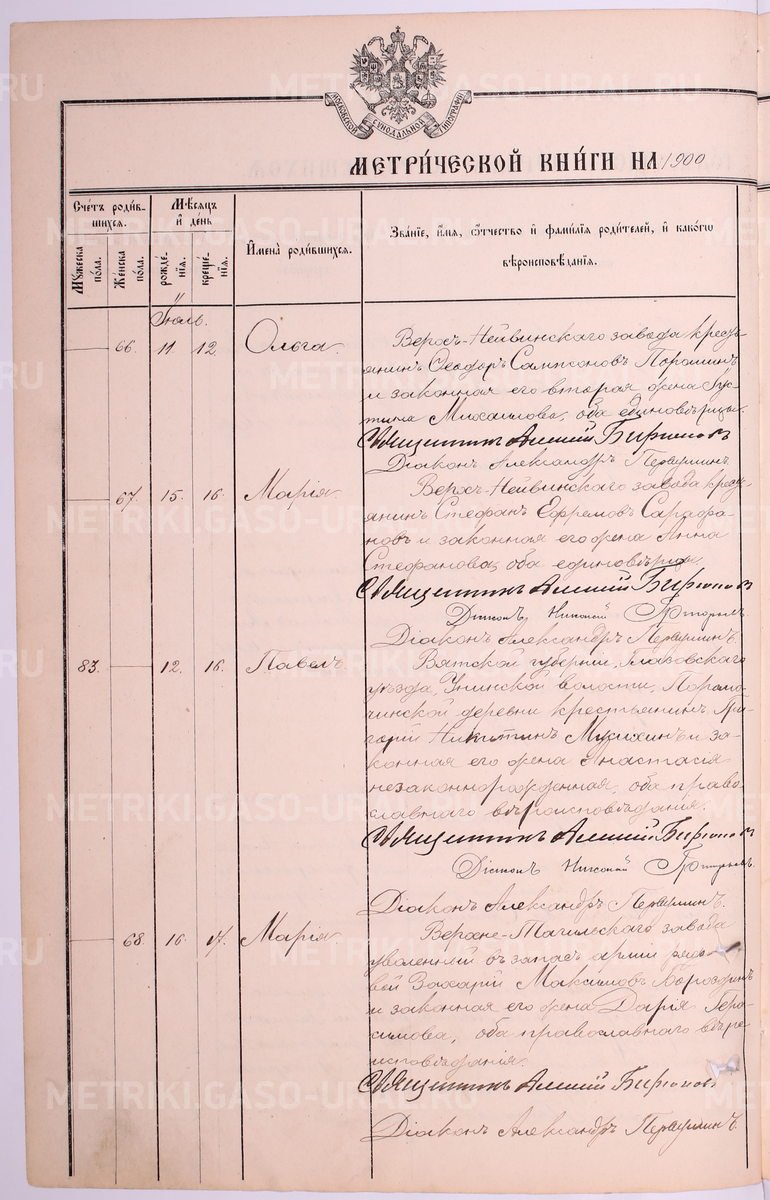 МОСКОВСКОЙ СѴНОДАЛЬНОЙ ТИПОГРАФІИ
МЕТРИ́ЧЕСКОЙ КНИ́ГИ НА 1900
Сче́тъ роди́в-
шихся.
Му́жеска по́ла.
Же́нска по́ла.
Мѣ́сяцъ
и де́нь
рожде́-
нїя.
креще́-
нїя.
Имена̀ роди́вшихся.
Зва́нїе, и́мя, ѻ́тчество и фами́лїя роди́телей, и како́гѡ
вѣроисповѣ́данїя.
Іюль.
66. 11. 12. Ольга.
Верхъ-Нейвинскаго завода кресть-
янинъ Ѳеодоръ Сампсоновъ Поромшинъ
и законная его вторая жена Іус-
тина Михаилова, оба единовѣрцы.
Священникъ Алексій Бирюковъ
Діаконъ Александръ Первушинъ.
67. 15. 16. Марія.
Верхъ-Нейвинскаго завода кресть-
янинъ Стефанъ Ефремовъ Сарафа-
новъ и законная его жена Анна
Стефанова, оба единовѣрцы.
Священникъ Алексій Бирюковъ
Діаконъ Николай
Діаконъ Александръ Первушинъ.
83. 12. 16. Павелъ.
Вятской губерніи, Глазовскаго
уѣзда, Унинской волости,
деревни крестьянинъ Гри-
горій Никитинъ и за-
конная его жена Анастасія
незаконнорожденная, оба право-
славнаго вѣроисповѣданія.
Священникъ Алексій Бирюковъ
Діаконъ Николай
Діаконъ Александръ Первушинъ.
68. 16. 17. Марія.
Верхне-Тагильскаго завода
уволенный въ запасъ арміи рядо-
вой Захарій Максимовъ Бороздинъ
и законная его жена Дарія Гера-
симова, оба православнаго вѣро-
исповѣданія.
Священникъ Алексій Бирюковъ
Діаконъ Александръ Первушинъ.
METRIKI.GASO-URAL.RU